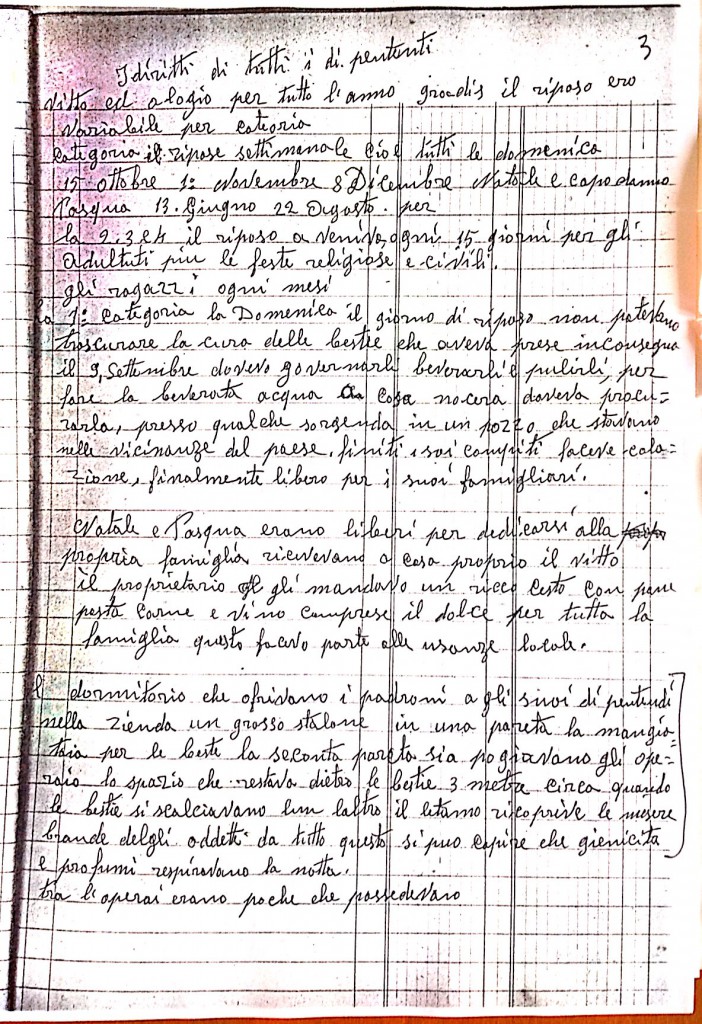 3
I diritti di tutti i di pententi
Vitto ed alogio per tutto l'anno gradis il riposo era
variabile per categoria
categoria il ripose settimanale cioè tutti le domenica
15 ottobre 1: Novembre 8 Dicembre Natale e capodanno
Pasqua 13. Giugno 22 Agosto. per
la 2. 3 e 4 il riposo a veniva ogni 15 giorni per gli
adultuti piu le feste religiose e civili.
gli ragazzi ogni mesi
la 1: categoria la Domenica il giorno di riposo non potevano
trascurare la cura delle bestie che aveva prese inconsegna
il 9, Settembre doveva governarli beverarli e pulirli, per
fare la beverata acqua casa nocera doveva procu=
rarla, presso qualche sorgenda in un pozzo che stavano
nelle vicinanze del paese. finiti i soi compiti faceve cola=
zione, finalmente libero per i suoi famigliari.
Natale e Pasqua erano liberi per dedicarsi alla
propria famiglia ricevevano a casa proprio il vitto
il proprietario gli mandava un ricco cesto con pane
pasta carne e vino comprese il dolce per tutta la
famiglia questo facevo parte alle usanze locale.
Il dormitorio che ofrivano i padroni a gli suoi di pentendi
nella zienda un grosso stalone in una pareta la mangia=
toia per le beste la seconta pareta sia pogiavano gli ope=
raio lo spazio che restava dietro le bestie 3 metre circa quando
le bestie si scalciavano lun laltro il letamo ricoprive le mesere
brande delgli addetti da tutto questo si puo capire che gienicita
e profumi respiravano la notta.
tra l'operai erano poche che possedevano